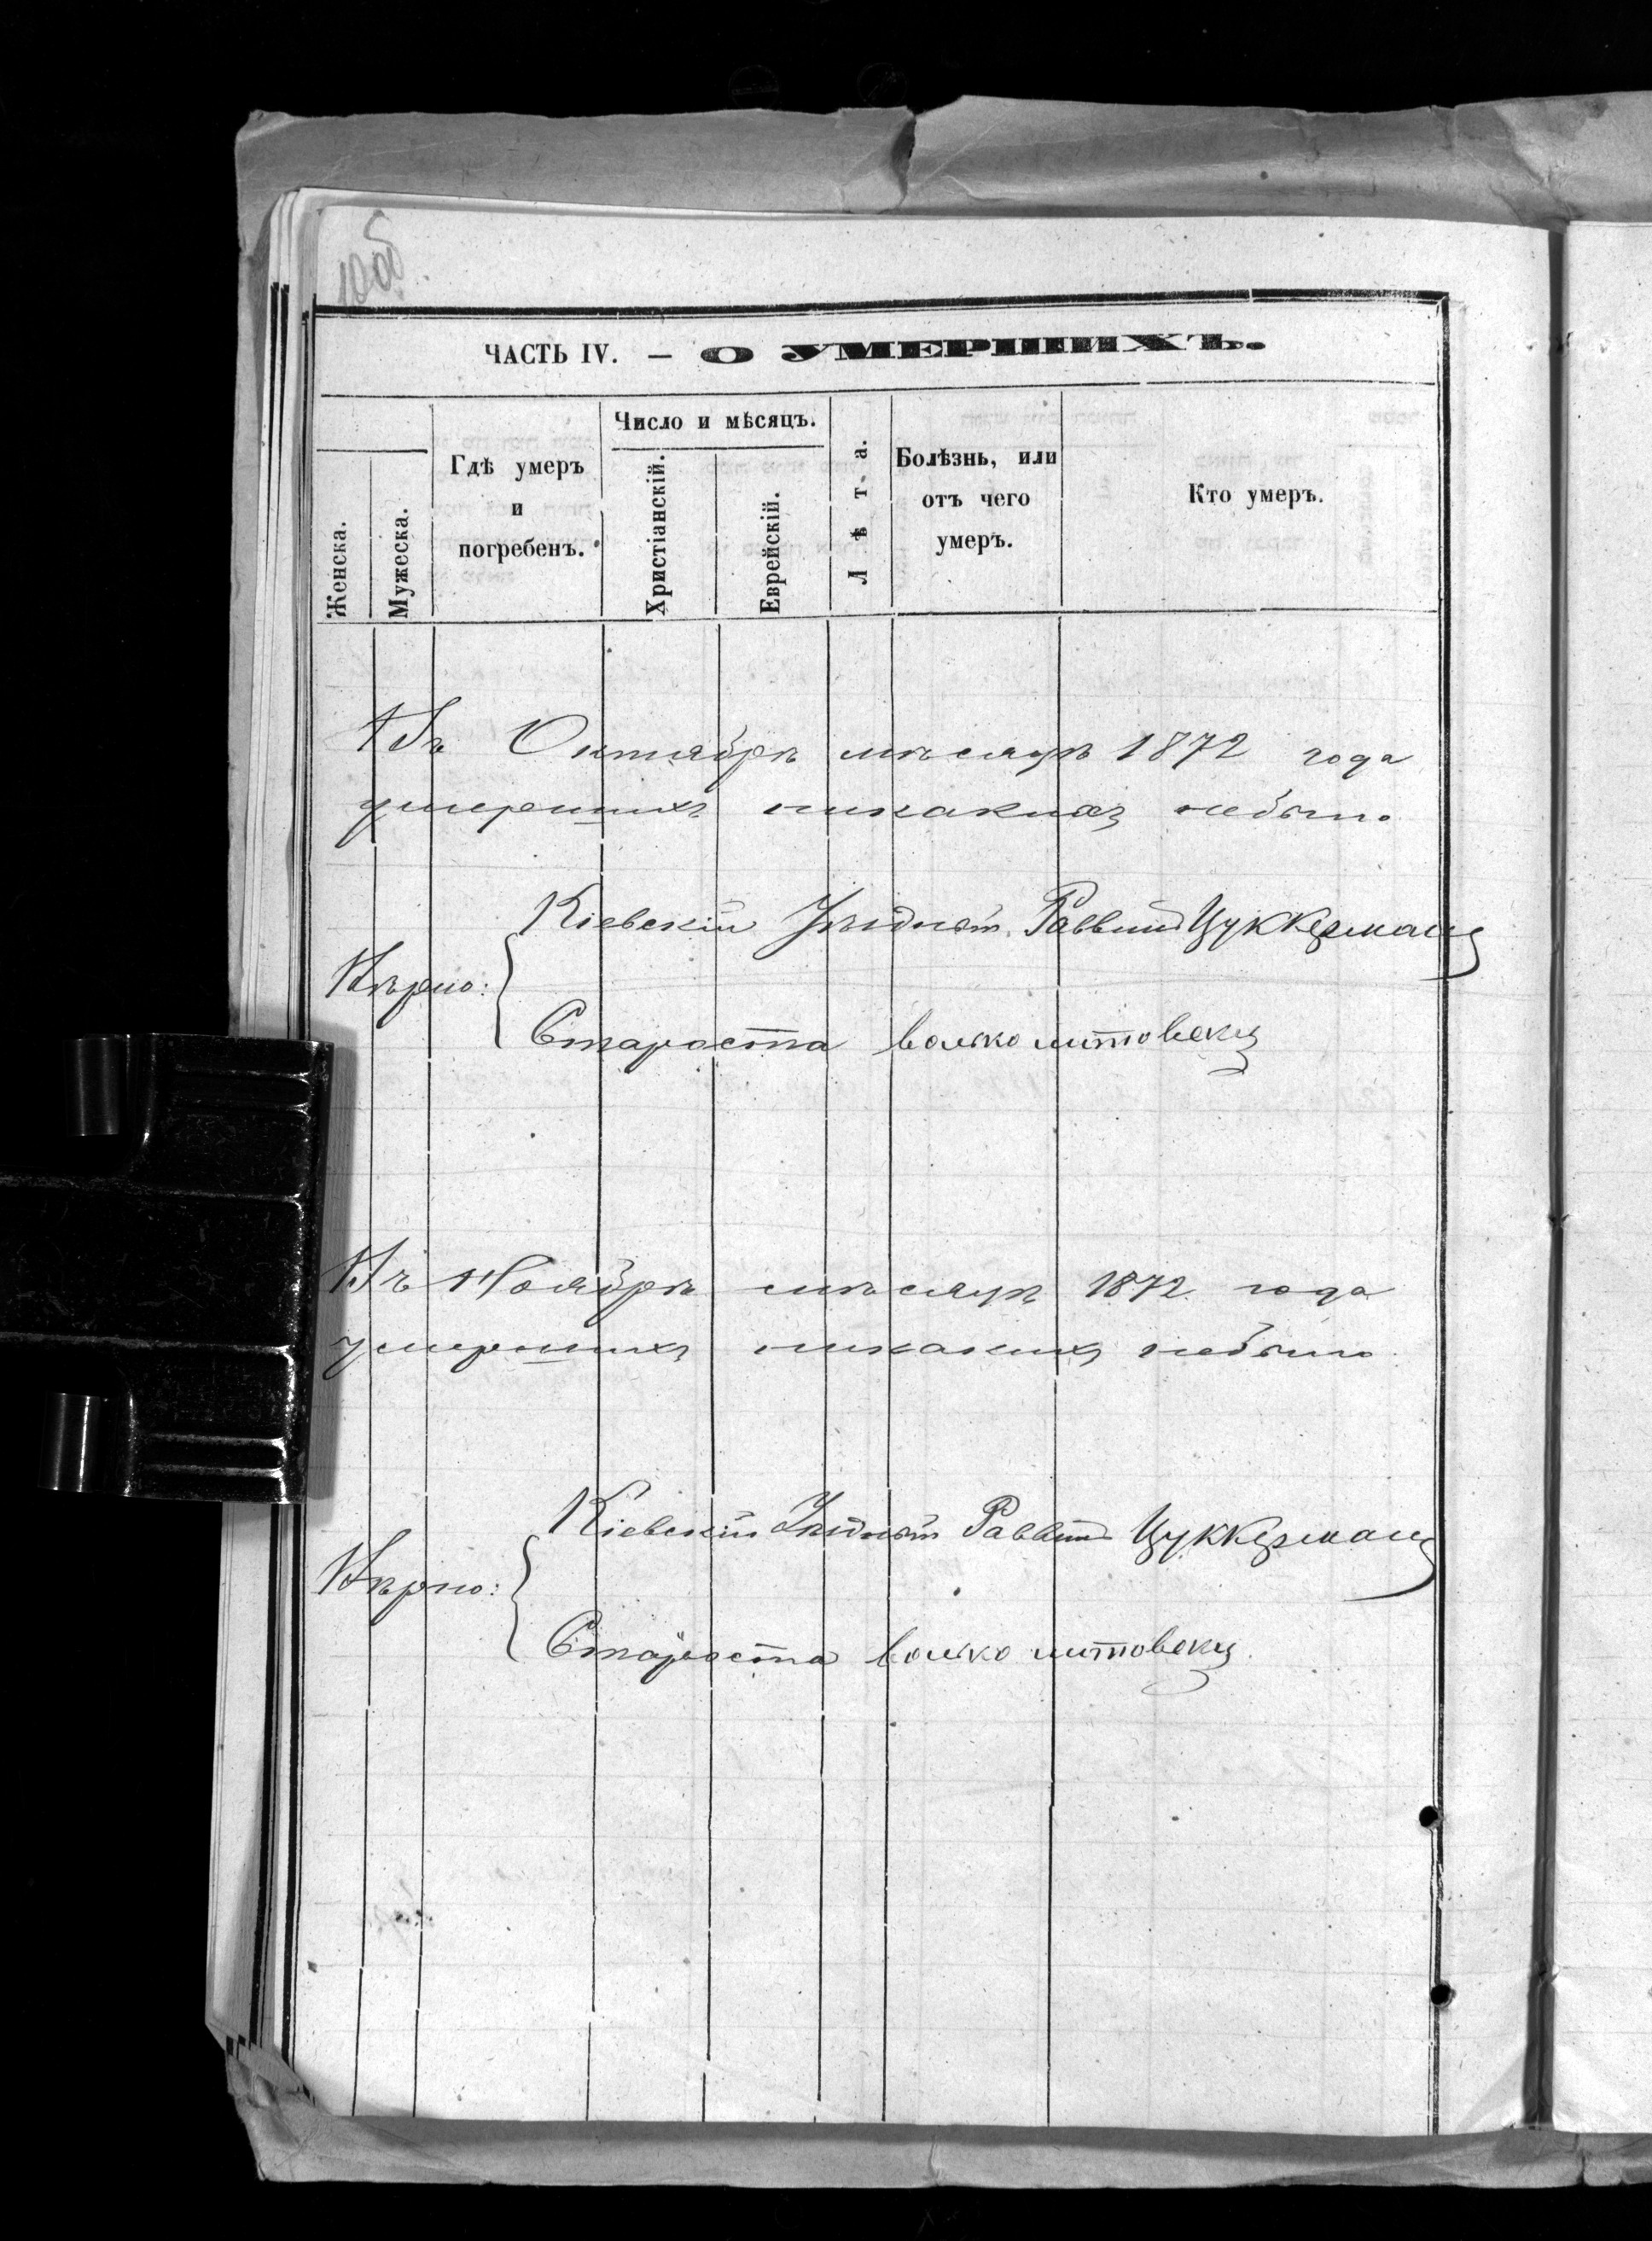 10об
ЧАСТЬ IV. — О УМЕРШИХЪ.
Женска.
Мужеска.
Гдѣ умеръ
и
погребенъ.
Число и мѣсяцъ.
Христіанскій.
Еврейскій.
Лѣта.
Болѣзнь, или
отъ чего
умеръ.
Кто умеръ.
Въ Октябрѣ мѣсяцѣ 1872 года
умершихъ никакихъ небыло
Кіевскій Уѣздный Раввинъ Цуккерманъ
Вѣрно:
Староста Волько Литовскій
Въ Ноябрѣ мѣсяцѣ 1872 года
умершихъ никакихъ небыло
Кіевскій Уѣздный Раввинъ Цуккерманъ
Вѣрно:
Староста Волько Литовскій